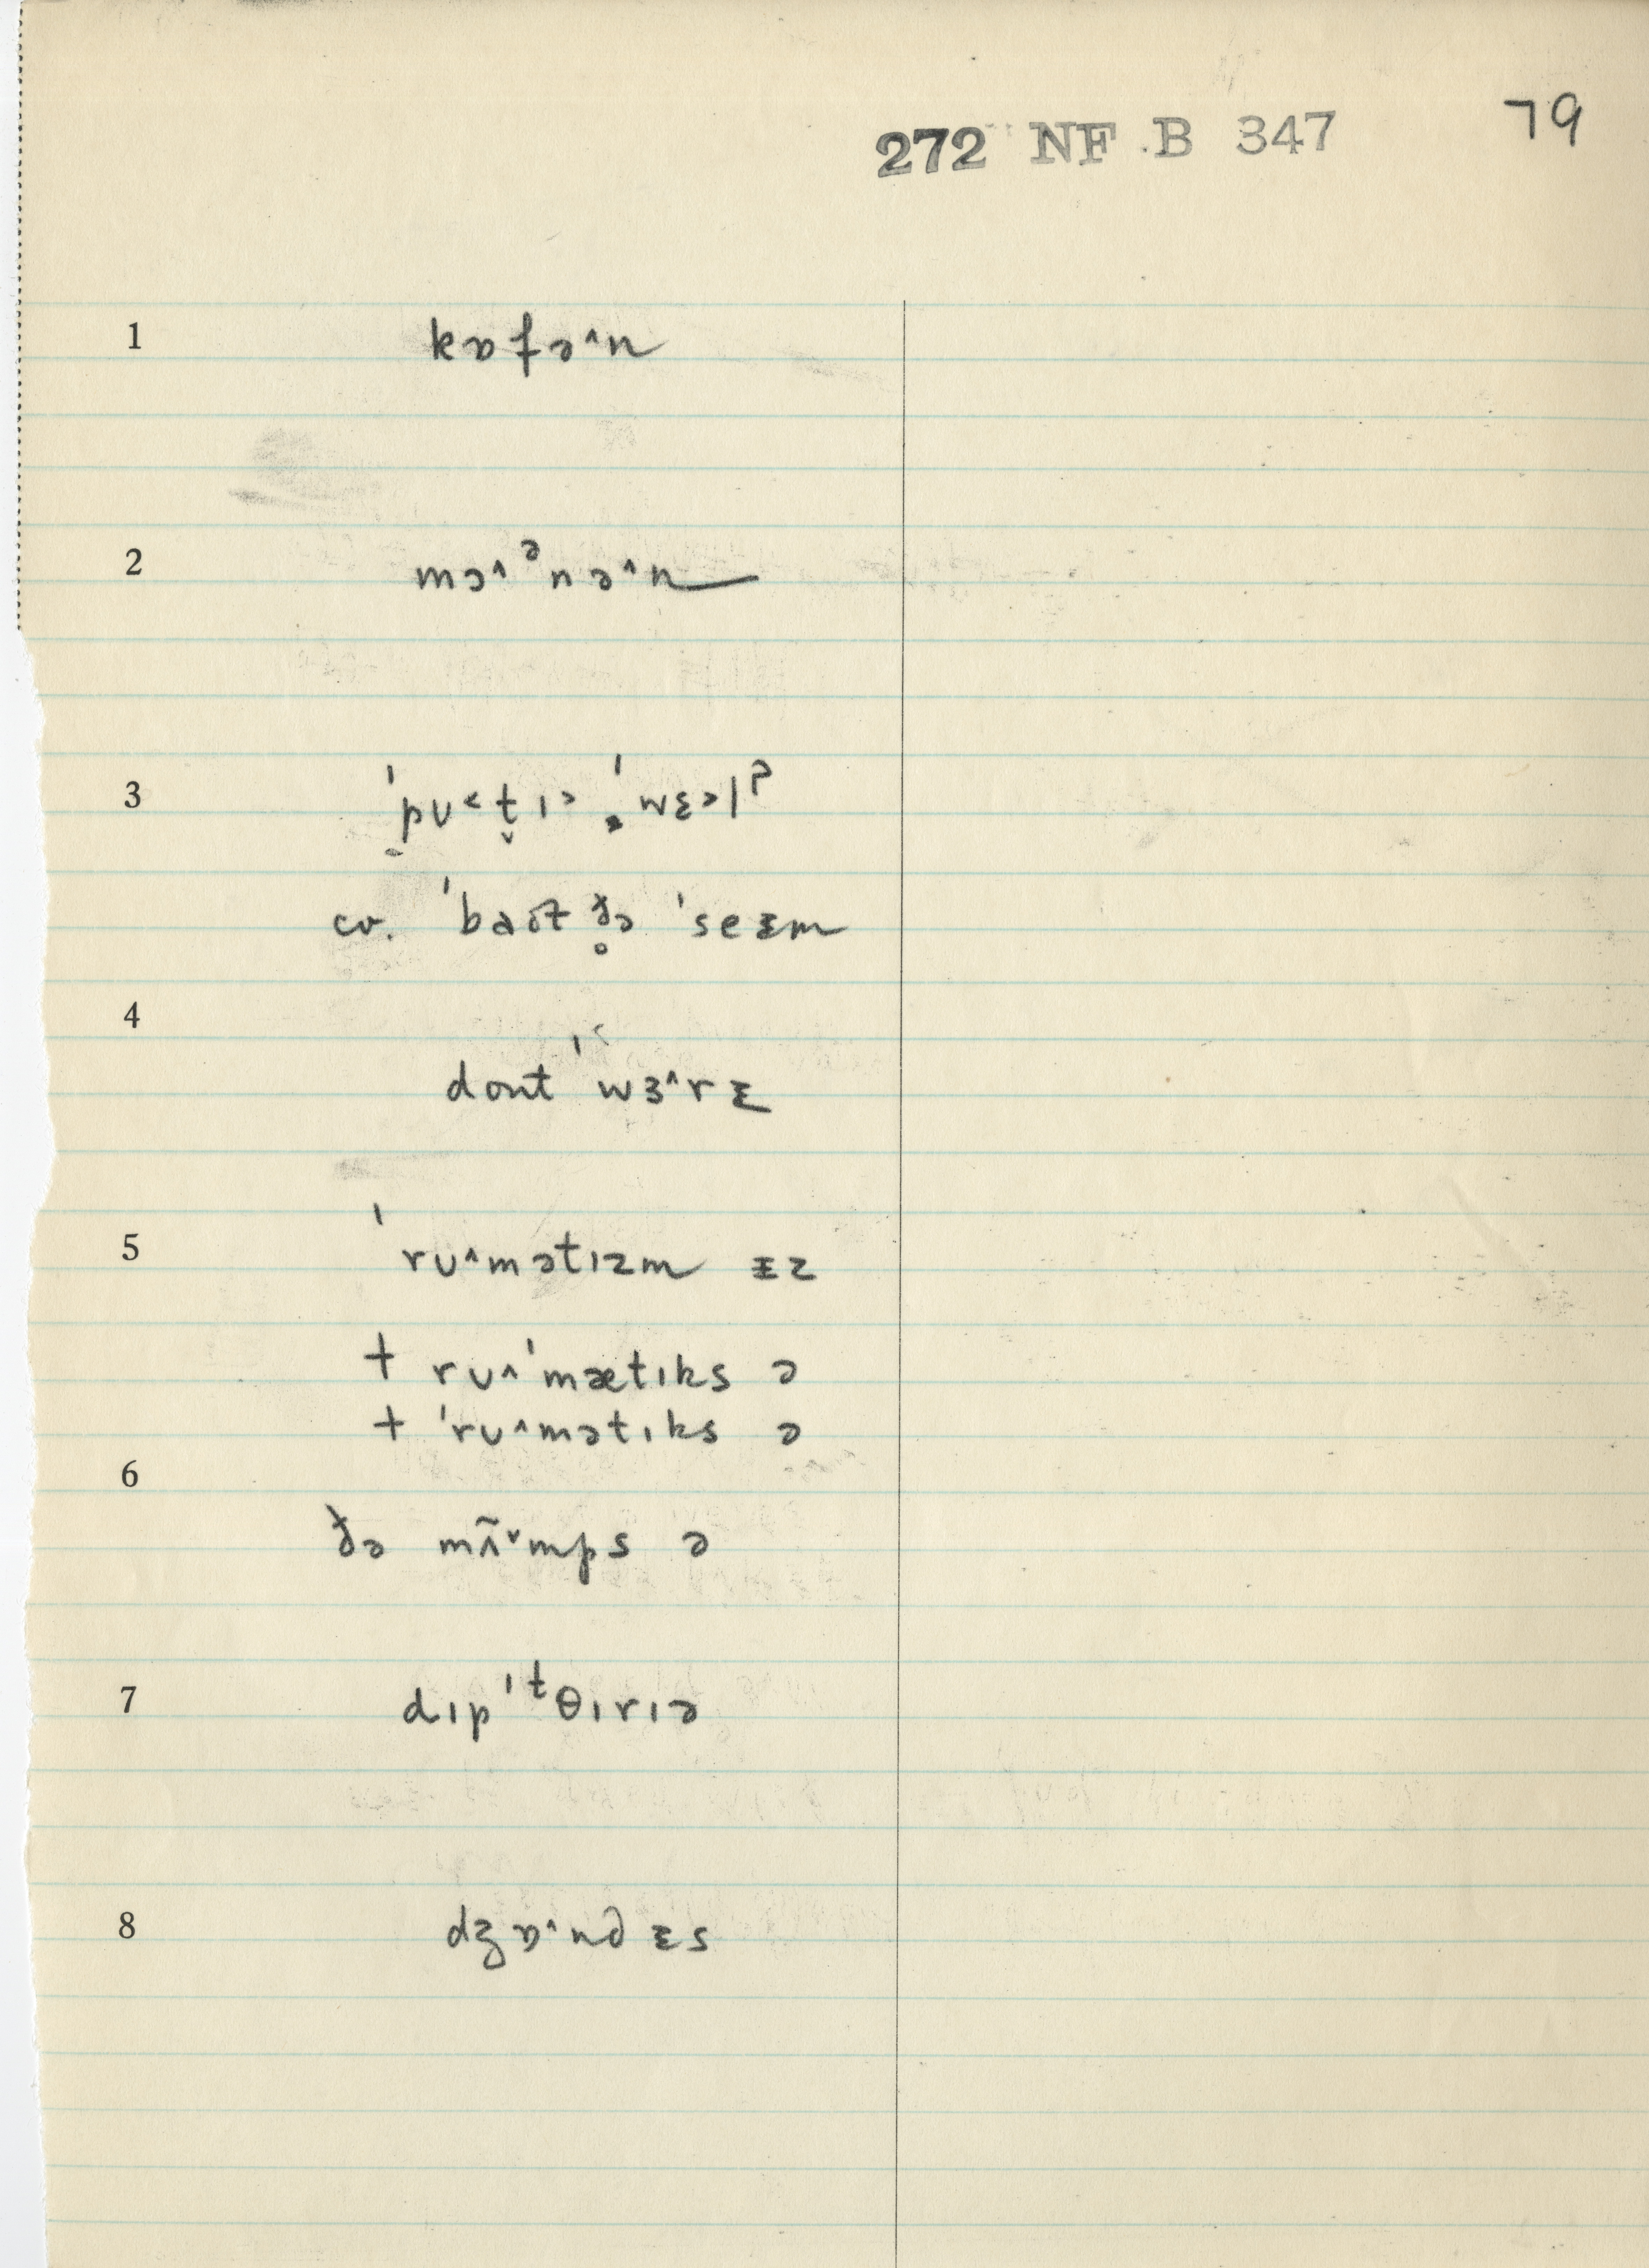 272 NF B 347 79
1 kɒfə^n
2 mɔ^ᵊnə^n
3 ˈpʊ˂t̬ɪ˃ ˈwɛəlˀ
cv. ˈbaɪt ð̥ə ˈseɪm
4
dont ˈwɜ^rɪ
5 ˈrʊ^mətɪzm ɪz
+ rʊ^ˈmætɪks ə
+ ˈrʊ^mətɪks ə
6
ðə mʌ̃˅mps ə
7 dɪpˈᵗθɪrɪə
8 dʒɒ^ndɪs